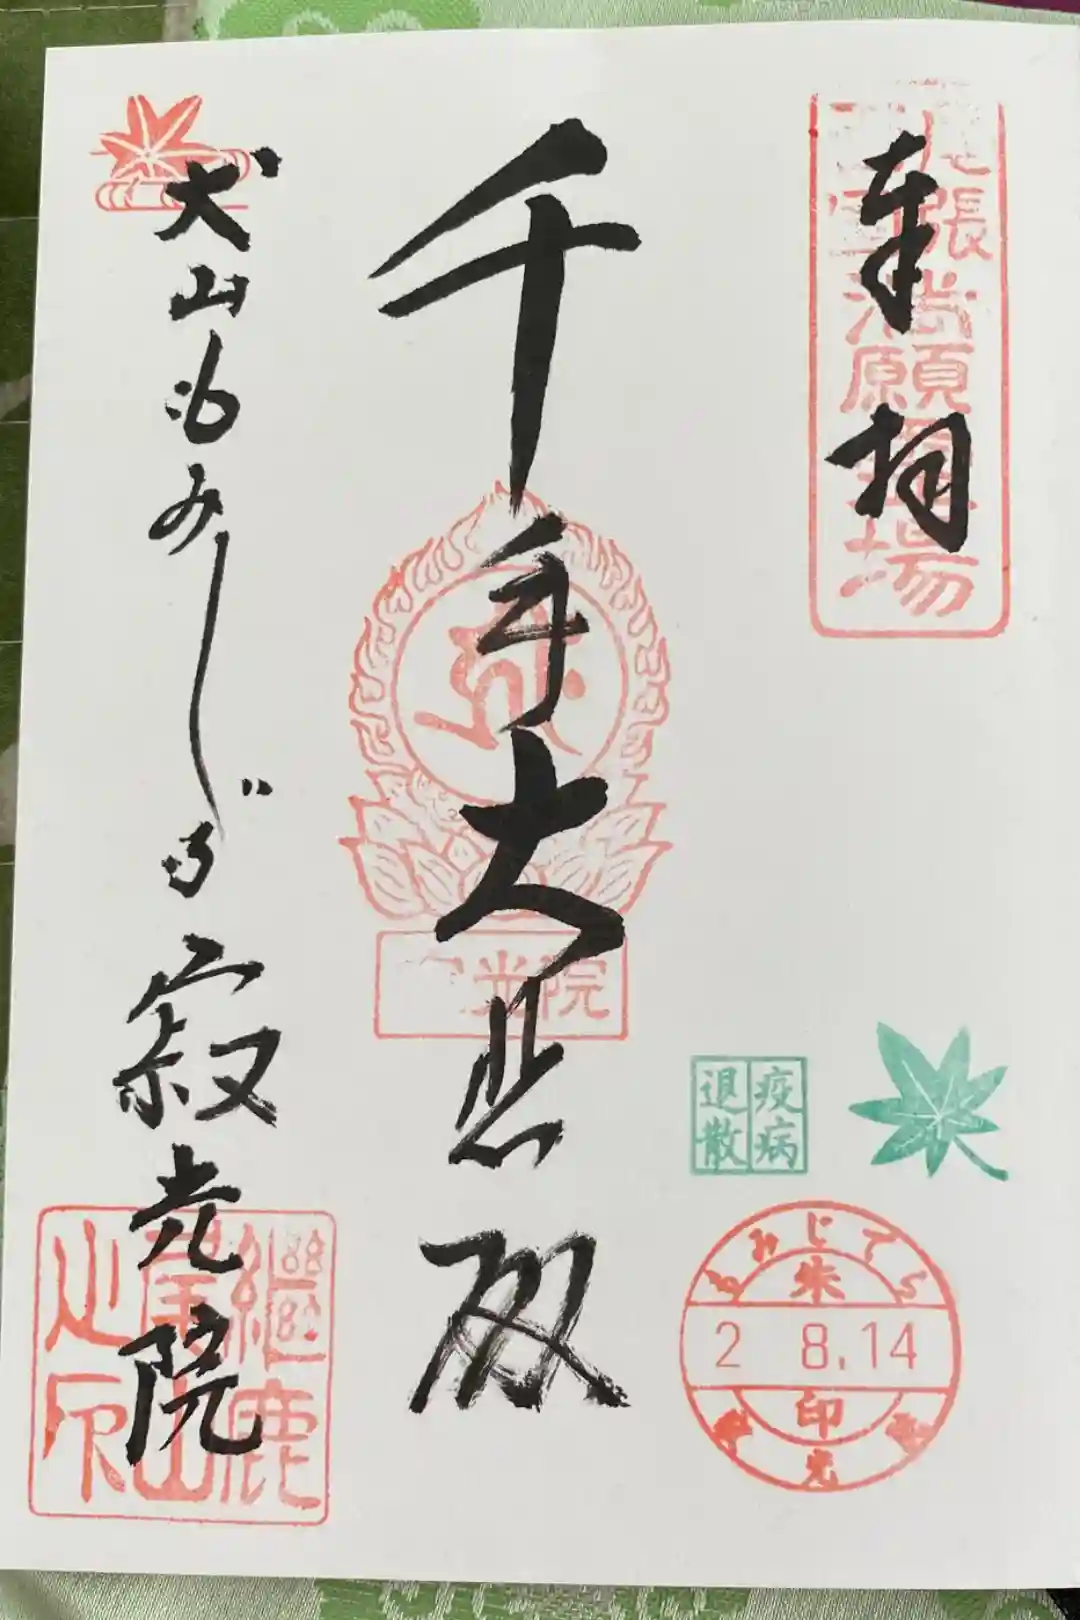 奉拝
尾張
満願霊場
千手大悲殿
光院
疫病
退散
もみじでら
朱
2 8.14
印
光
犬山もみじでる
寂光院
継鹿
尾山
之印